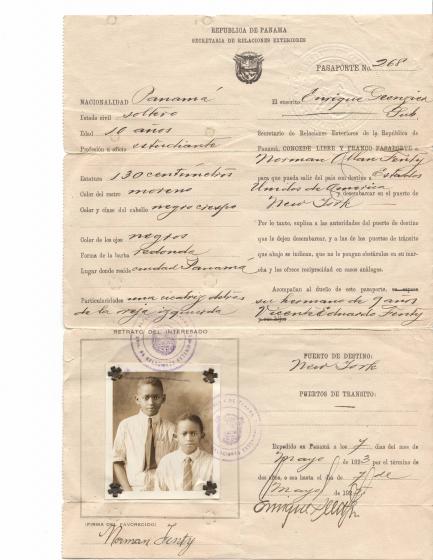 REPUBLICA DE PANAMA
SECRETARIA DE RELACIONES EXTERIORES
PASAPORTE No. 268
NACIONALIDAD Panamá
Estado civil soltero
Edad 10 años
Profesión u oficio estudiante
Estatura 130 centímetros
Color del rostro moreno
Color y clase del cabello negro crespo
Color de los ojos negros
Forma de la barba redonda
Lugar donde reside ciudad Panamá
Particularidades una cicatriz detrás
de la oreja izquierda
RETRATO DEL INTERESADO
(FIRMA DEL FAVORECIDO)
Norman Fenty
El suscrito, Enrique
Sub
Secretario de Relaciones Exteriores de la República de
Panamá, CONCEDE LIBRE Y FRANCO PASAPORTE a
Norman Allan Fenty
para que pueda salir del país con destino a Estados
Unidos de America y desembarcar en el puerto de
New York
Por lo tanto, explica a las autoridades del puerto de destino
que le dejen desembarcar, y a las de los puertos de tránsito
que abajo se indican, que no le pongan obstáculos en su mar-
cha y les ofrece reciprocidad en casos análogos.
Acompañan al dueño de este pasaporte,
su hermano de 9 años
Vicente Eduardo Fenty
PUERTO DE DESTINO:
New York
PUERTOS DE TRANSITO:
Expedido en Panamá a los 7 días del mes de
Mayo de 1923 por el término de
dos años, o sea hasta el día 7 de
Mayo de 192